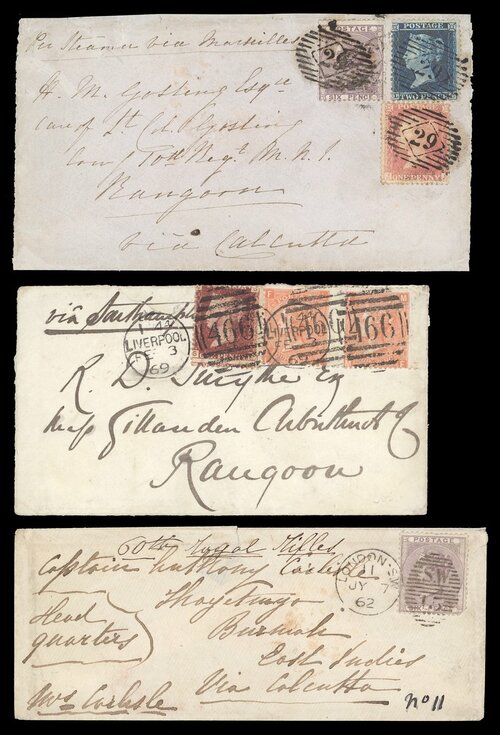 Per Steamer via Marseilles
POSTAGE
SIX PENCE
TWO PENCE
29
H. M. Gosling Esqre
care of Lt Col Gosling
Regt M. N. I.
ONE PENNY
29
Rangoon
via Calcutta
via Southampton
LIVERPOOL
FE 3
69
466
LIVERPOOL
FE 3
69
466
R. D. Smythe Esq
Messrs Gillanders Arbuthnot & Co
Rangoon
60th Royal Rifles
Captain Anthony Carlisle
Head
quarters
Thayetmyo
Burmah
East Indies
Via Calcutta
Mrs Carlisle
LONDON-SW
JY 7
62
POSTAGE
SW
No 11